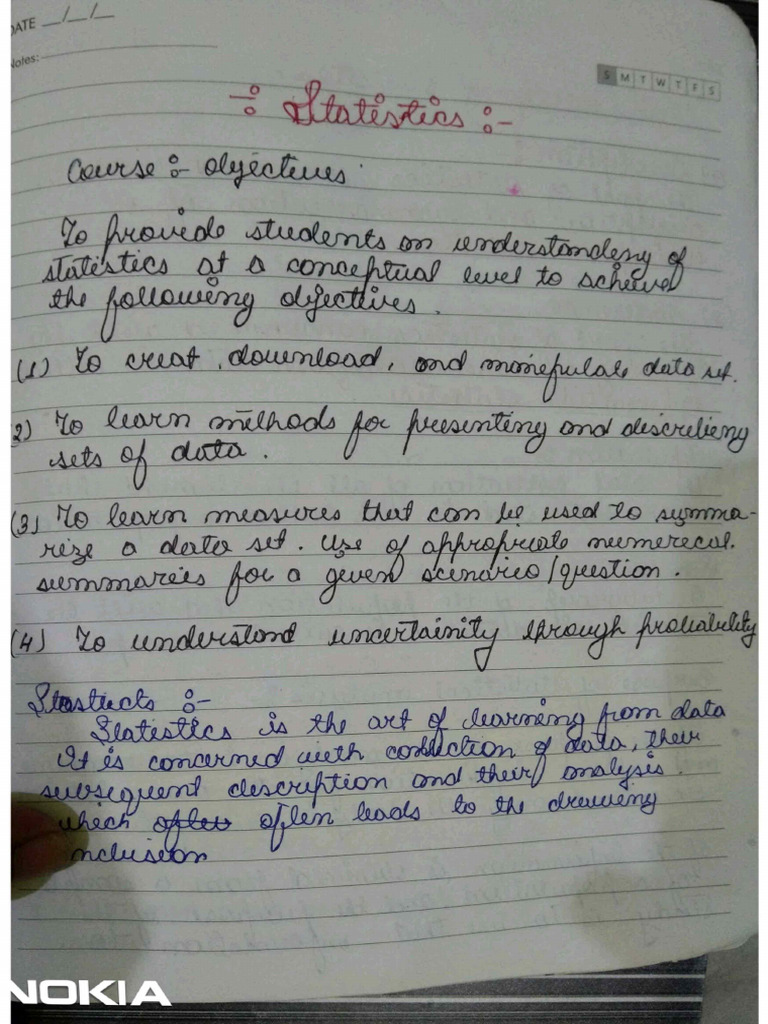 DATE __/__/__
Notes:
S M T W T F S
÷ Statistics :-
Course :- objectives.
To provide students an understanding of
statistics at a conceptual level to achieve
the following objectives.
(1) To creat, download, and manipulate data set.
2) To learn methods for presenting and discribing
sets of data.
(3) To learn measures that can be used to summa-
rize a data set. Use of appropriate numerical
summaries for a given scenario/question.
(4) To understand uncertainity through probability
:-
Statistics is the art of learning from data
It is concerned with collection of data, their
subsequent description and their analysis.
which often leads to the drawing
nclusion
NOKIA